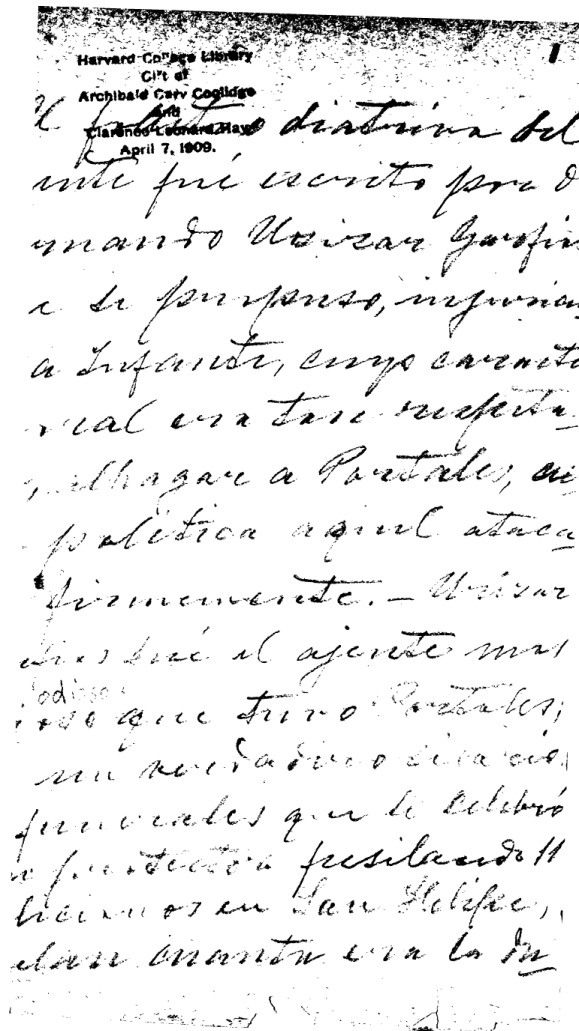 Harvard College Library
Gift of
Archibald Cary Coolidge
and
Clarence Leonard Hay
April 7, 1909.
1
El diatriva del
ante fué escrito por D
rnando Urizar Garfias
e se propuso, injuriar
a Infante, cuyo caracte
real era tan respeta
, alhagar a Portales, cu
politica aquel ataca
firmemente. — Urizar
fué el ajente mas
odioso
ioso que tuvo Portales,
un verdadero
funerales que le celebró
protector fusilando 11
en San Felipe,
cuanta era la